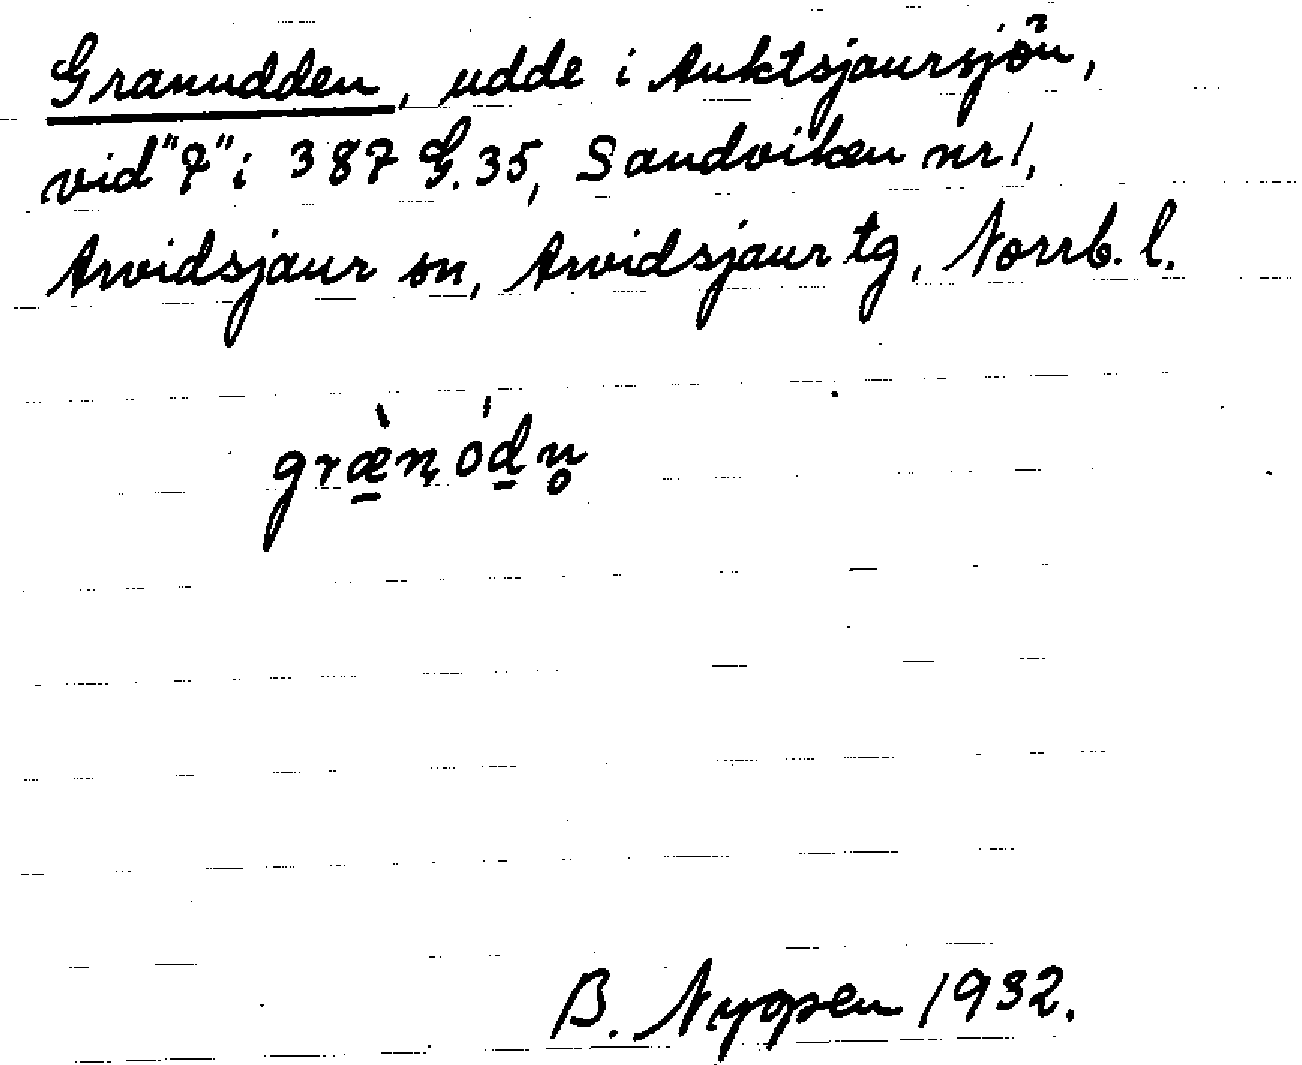 Granudden, udde i Auktsjaursjön,
vid "7" i 387 G. 35, Sandviken nr 1,
Arvidsjaur sn, Arvidsjaur tg, Norrb. l.
græ̠̀n, ód̠n̥
B. Nyopen 1932.